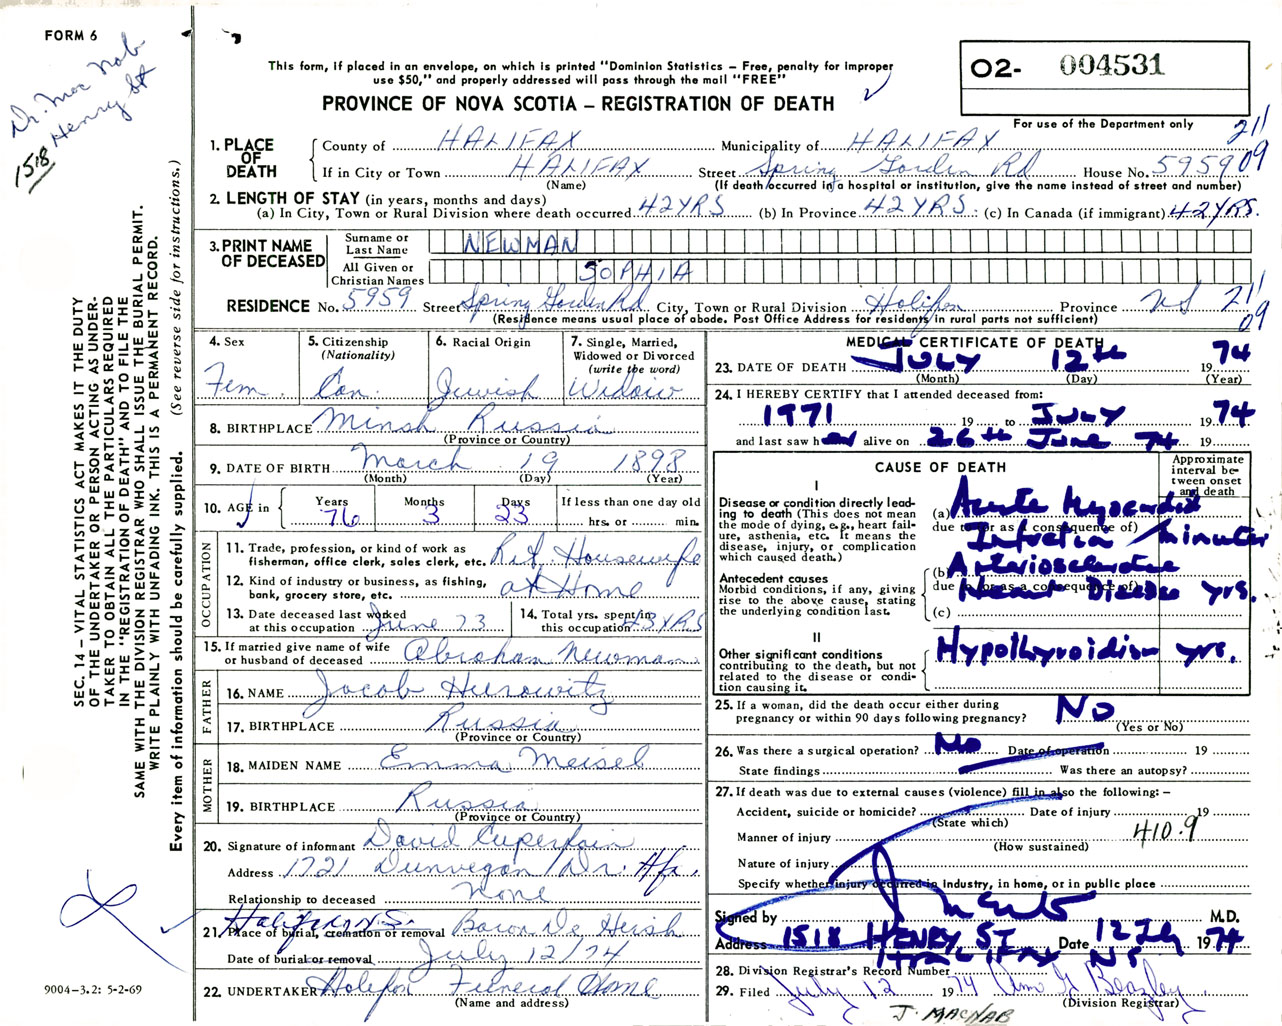 FORM 6
Dr. Mac Nab
1518 Henry St
This form, if placed in an envelope, on which is printed "Dominion Statistics – Free, penalty for improper
use $50," and properly addressed will pass through the mail "FREE"
PROVINCE OF NOVA SCOTIA – REGISTRATION OF DEATH
O2- 004531
For use of the Department only
211
09
1. PLACE OF DEATH
County of HALIFAX Municipality of HALIFAX
If in City or Town HALIFAX Street Spring Garden Rd House No. 5959
(Name) (If death occurred in a hospital or institution, give the name instead of street and number)
2. LENGTH OF STAY (in years, months and days)
(a) In City, Town or Rural Division where death occurred 42 YRS (b) In Province 42 YRS: (c) In Canada (if immigrant) 42 YRS.
3. PRINT NAME OF DECEASED
Surname or Last Name NEWMAN
All Given or Christian Names SOPHIA
RESIDENCE No. 5959 Street Spring Garden Rd. City, Town or Rural Division Halifax Province NS
211
09
(Residence means usual place of abode. Post Office Address for residents in rural parts not sufficient)
4. Sex
Fem.
5. Citizenship
(Nationality)
Can.
6. Racial Origin
Jewish
7. Single, Married,
Widowed or Divorced
(write the word)
Widow
8. BIRTHPLACE Minsk Russia
(Province or Country)
9. DATE OF BIRTH March 19 1898
(Month) (Day) (Year)
10. AGE in
Years Months Days
76 3 23
If less than one day old
hrs. or min.
OCCUPATION
11. Trade, profession, or kind of work as
fisherman, office clerk, sales clerk, etc. Ret Housewife
12. Kind of industry or business, as fishing,
bank, grocery store, etc. at Home
13. Date deceased last worked
at this occupation June 73
14. Total yrs. spent in
this occupation 43 YRS
15. If married give name of wife
or husband of deceased Abraham Newman
FATHER
16. NAME Jacob Hurowitz
17. BIRTHPLACE Russia
(Province or Country)
MOTHER
18. MAIDEN NAME Emma Meisel
19. BIRTHPLACE Russia
(Province or Country)
20. Signature of informant David Cuperfain
Address 1721 Dunvegan Dr. Hfx.
Relationship to deceased None
Halifax N.S.
21. Place of burial, cremation or removal Baron De Hirsh
Date of burial or removal July 12/74
22. UNDERTAKER Halifax Funeral Home
(Name and address)
MEDICAL CERTIFICATE OF DEATH
23. DATE OF DEATH JULY 12th 1974
(Month) (Day) (Year)
24. I HEREBY CERTIFY that I attended deceased from:
1971 19 to July 1974
and last saw her alive on 26th June 74 19
CAUSE OF DEATH
Approximate
interval be-
tween onset
and death
I
Disease or condition directly lead-
ing to death (This does not mean
the mode of dying, e.g., heart fail-
ure, asthenia, etc. It means the
disease, injury, or complication
which caused death.)
(a) Acute Myocardial
due to or as a consequence of)
Infarction / minutes
Antecedent causes
Morbid conditions, if any, giving
rise to the above cause, stating
the underlying condition last.
(b) Arteriosclerotic
due to or as a consequence of)
Heart Disease yrs.
(c)
II
Other significant conditions
contributing to the death, but not
related to the disease or condi-
tion causing it.
Hypothyroidism yrs.
25. If a woman, did the death occur either during
pregnancy or within 90 days following pregnancy? No
(Yes or No)
26. Was there a surgical operation? No Date of operation 19
State findings Was there an autopsy?
27. If death was due to external causes (violence) fill in also the following: –
Accident, suicide or homicide? Date of injury 19
(State which)
Manner of injury 410.9
(How sustained)
Nature of injury
Specify whether injury occurred in Industry, in home, or in public place
Signed by M.D.
Address 1518 HENRY ST Date 12 July 1974
HALIFAX NS
28. Division Registrar's Record Number
29. Filed July 12 1974 Wm G Beazley
(Division Registrar)
J. MACNAB
SEC. 14 – VITAL STATISTICS ACT MAKES IT THE DUTY
OF THE UNDERTAKER OR PERSON ACTING AS UNDER-
TAKER TO OBTAIN ALL THE PARTICULARS REQUIRED
IN THE "REGISTRATION OF DEATH" AND TO FILE THE
SAME WITH THE DIVISION REGISTRAR WHO SHALL ISSUE THE BURIAL PERMIT.
WRITE PLAINLY WITH UNFADING INK. THIS IS A PERMANENT RECORD.
Every item of information should be carefully supplied. (See reverse side for instructions.)
9004-3.2: 5-2-69